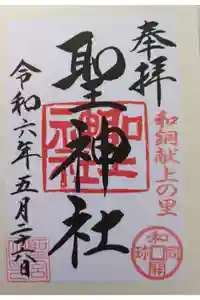 奉拝
和銅献上の里
和同開珎
聖神社
聖神社
令和六年五月日